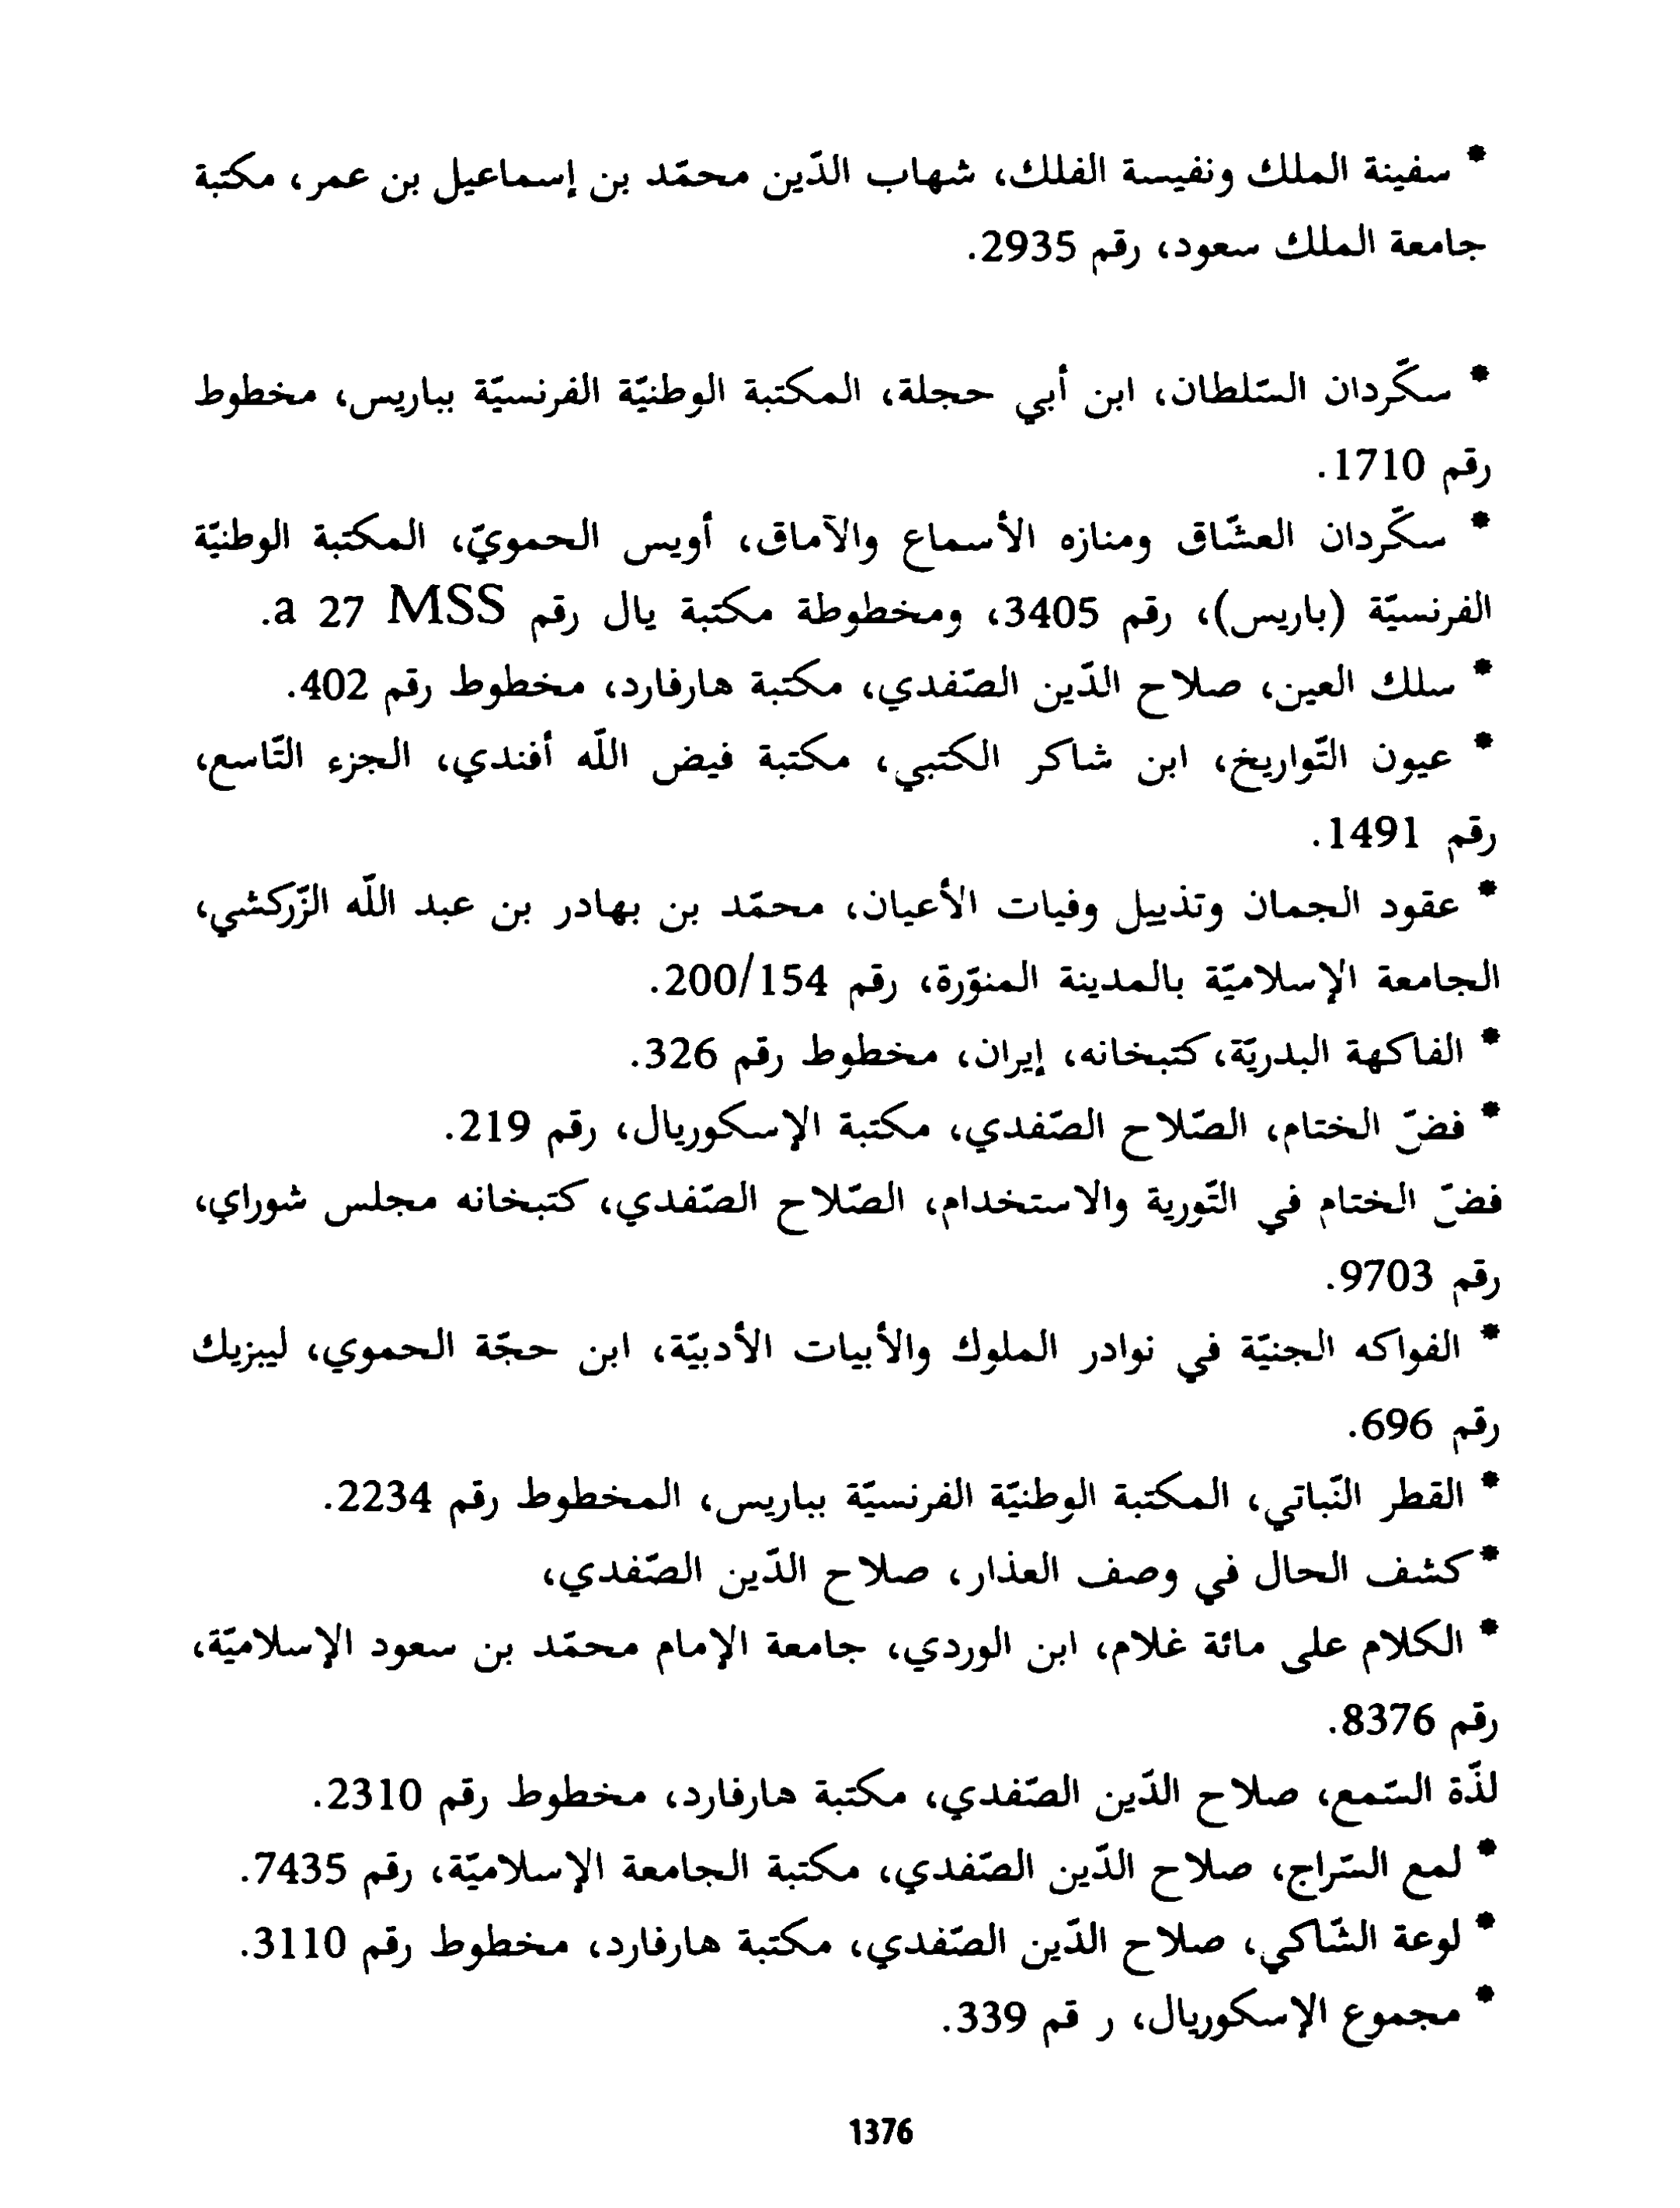 * سفينة الملك ونفيسة الفلك، شهاب الدّين محمّد بن إسماعيل بن عمر، مكتبة
جامعة الملك سعود، رقم 2935.
* سكّردان السّلطان، ابن أبي حجلة، المكتبة الوطنيّة الفرنسيّة بباريس، مخطوط
رقم 1710.
* سكّردان العشّاق ومنازه الأسماع والآماق، أويس الحمويّ، المكتبة الوطنيّة
الفرنسيّة (باريس)، رقم 3405، ومخطوطة مكتبة يال رقم a 27 MSS.
* سلك العين، صلاح الدّين الصّفدي، مكتبة هارفارد، مخطوط رقم 402.
* عيون التّواريخ، ابن شاكر الكتبي، مكتبة فيض اللّه أفندي، الجزء التّاسع،
رقم 1491.
* عقود الجمان وتذييل وفيات الأعيان، محمّد بن بهادر بن عبد اللّه الزّركشي،
الجامعة الإسلاميّة بالمدينة المنوّرة، رقم 200/154.
* الفاكهة البدريّة، كتبخانه، إيران، مخطوط رقم 326.
* فضّ الختام، الصّلاح الصّفدي، مكتبة الإسكوريال، رقم 219.
فضّ الختام في التّورية والاستخدام، الصّلاح الصّفدي، كتبخانه مجلس شوراي،
رقم 9703.
* الفواكه الجنيّة في نوادر الملوك والأبيات الأدبيّة، ابن حجّة الحموي، ليبزيك
رقم 696.
* القطر النّباتي، المكتبة الوطنيّة الفرنسيّة بباريس، المخطوط رقم 2234.
* كشف الحال في وصف العذار، صلاح الدّين الصّفدي،
* الكلام على مائة غلام، ابن الوردي، جامعة الإمام محمّد بن سعود الإسلاميّة،
رقم 8376.
لذّة السّمع، صلاح الدّين الصّفدي، مكتبة هارفارد، مخطوط رقم 2310.
* لمع السّراج، صلاح الدّين الصّفدي، مكتبة الجامعة الإسلاميّة، رقم 7435.
* لوعة الشّاكي، صلاح الدّين الصّفدي، مكتبة هارفارد، مخطوط رقم 3110.
* مجموع الإسكوريال، ر قم 339.
1376